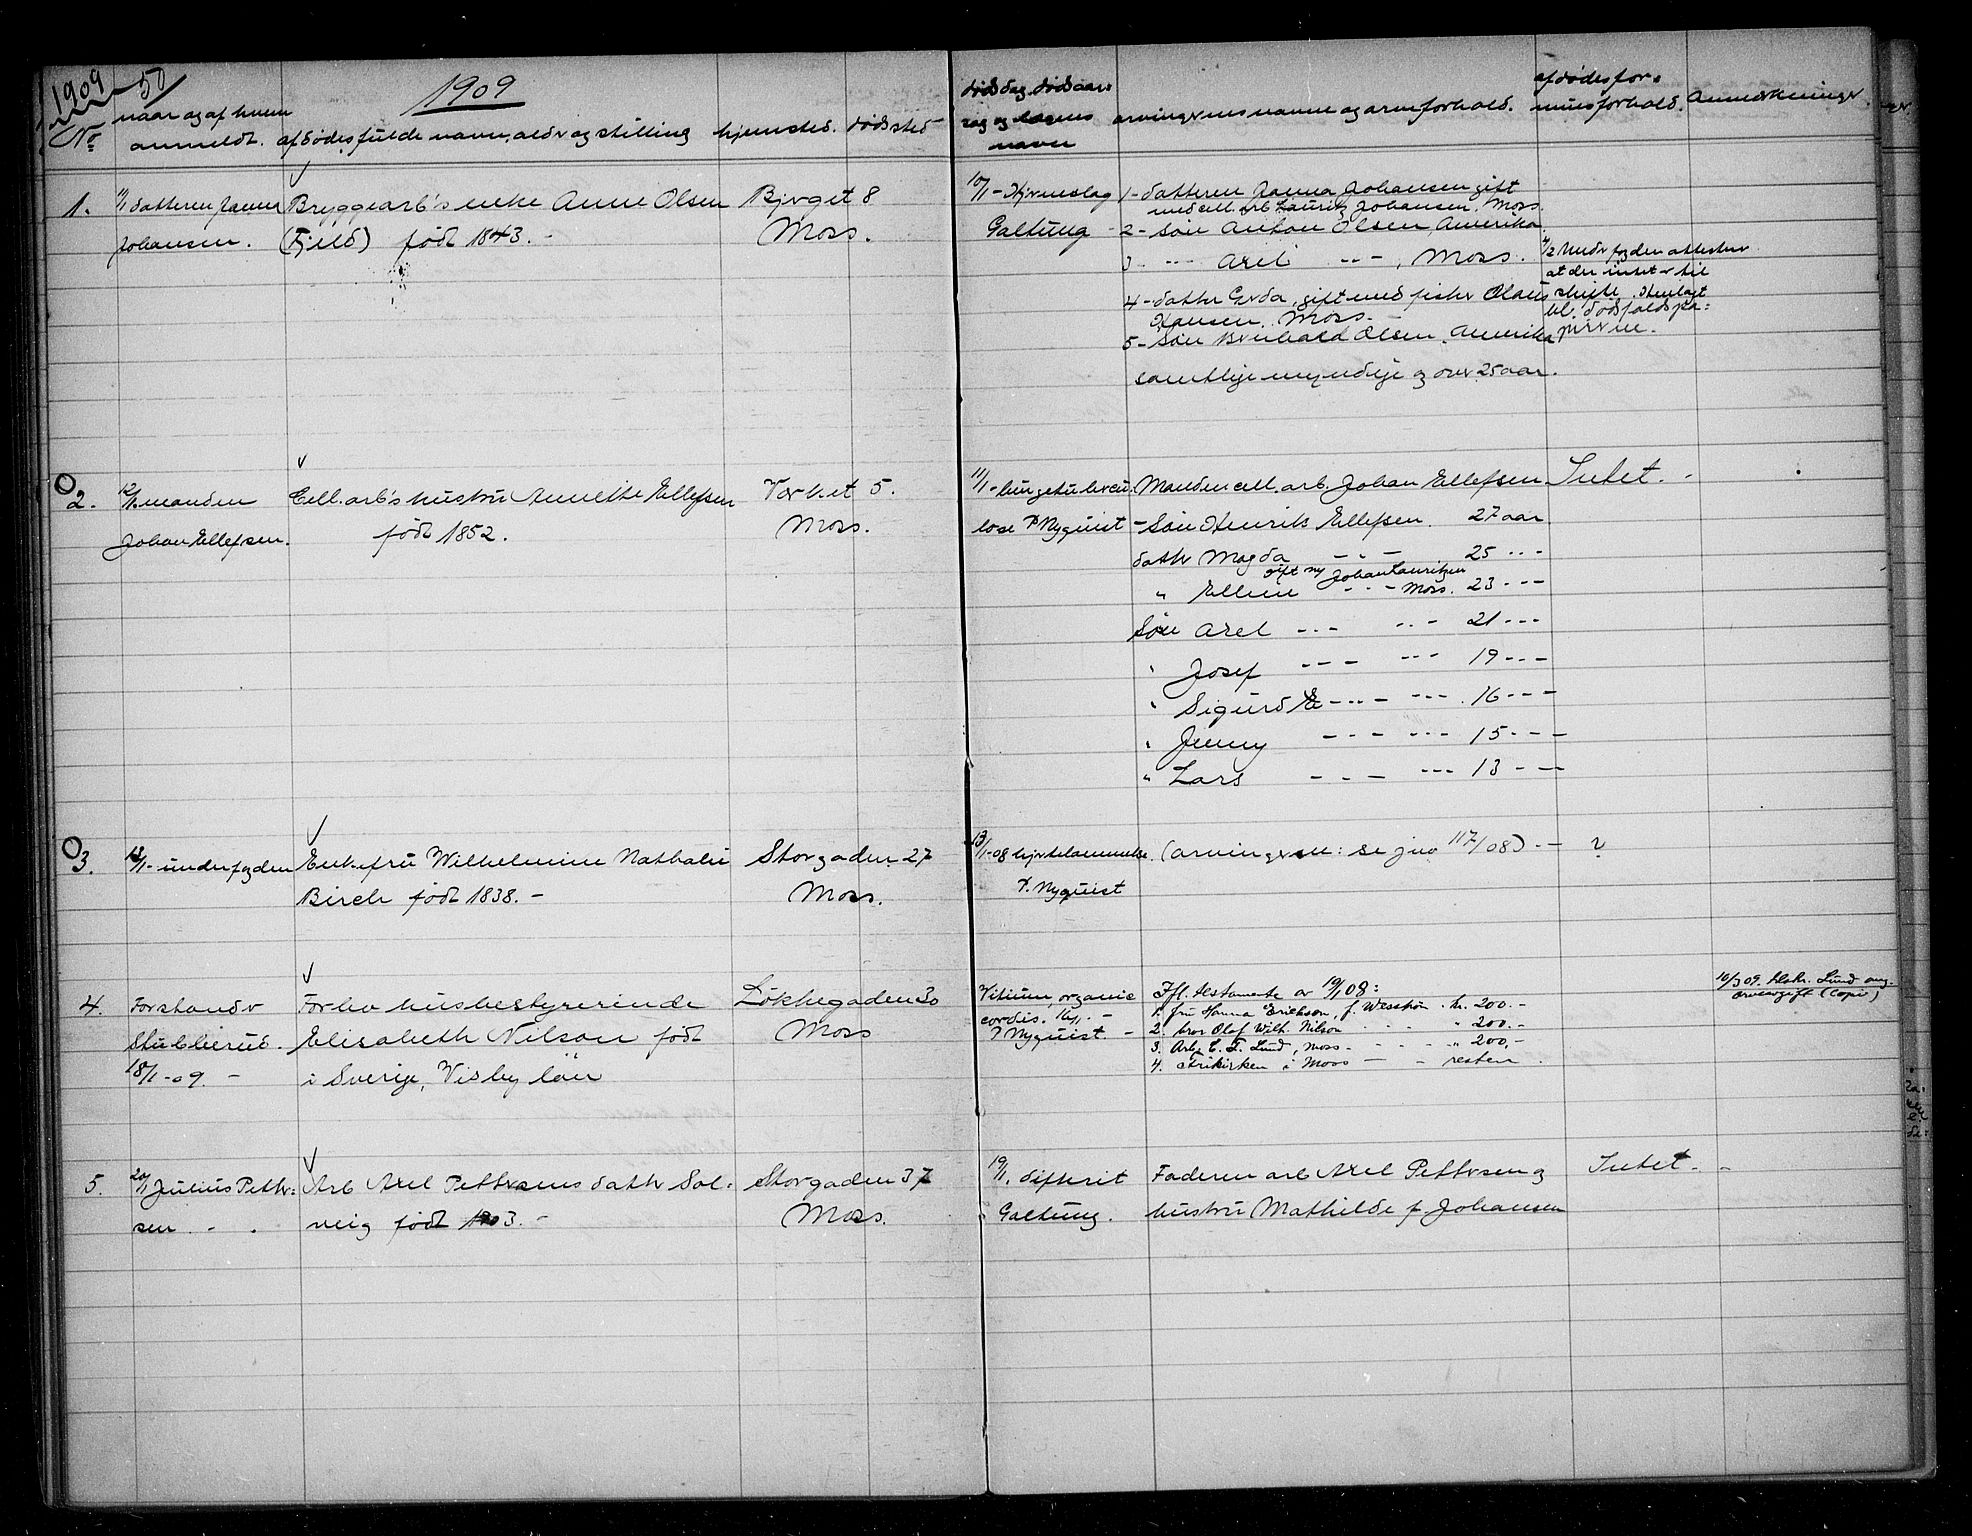 1909 50/ 1909
No naar og af hvem anmeldt. afdødes fulde navn, alder og stilling hjemsted. dødsted
dødsdag dødsaar=
sag og lægens
navn
arvingernes navne og arveforhold.
afdødes for=
muesforhold. Anmærkninger.
1. 11/1 datteren Janna
Johansen.
Bryggearb's enke Anne Olsen
(Fjeld) født 1843. -
Bjerget 8
Moss.
10/1 - Hjerneslag
Galtung -
1- datteren Janna Johansen gift
med cell. arb Lauritz Johansen. Moss.
2- søn Anton Olsen, Amerika.
3 -"- Axel -"-, Moss.
4- datter Gerda, gift med fisker Olaus
Hansen. Moss-
5- Søn Bernhard Olsen. Amerika
samtlige myndige og over 25 aar.
4/2 Underfogden attesterer
at der intet er til
skifte. Henlagt
bl. dødsfaldspa=
pirerne.
2. 12/1. manden
Johan Ellefsen.
Cell. arb's hustru Annette Ellefsen
født 1852.
Verket 5.
Moss.
11/1 - lungetubercu=
lose Dr Nyquist
Manden cell. arb. Johan Ellefsen
- Søn Henrik Ellefsen. 27 aar
datter Magda - " - 25 -"-
gift m/ Johan Lauritzen
" Ellen - - - Moss. 23 -"-
Søn Axel -"- -"- 21 -"-
" Josef -"- -"- 19 -"-
" Sigurd E -"- -"- 16 -"-
" Jenny -"- -"- 15 -"-
" Lars -"- -"- 13 -"-
Intet. -
3. 13/1 - underfogden
Enkefru Wilhelmine Nathalie
Birch født 1838. -
Storgaden 27
Moss.
13/1-08 hjertelammelse.
Dr. Nyquist
(arvingerne: se jno 117/08) - - ?
4. Forstander
Stubberud.
18/1-09. -
Forhv husbestyrerinde
Elisabeth Nilson født
i Sverige, Visby län
Løkkegaden 30
Moss
Vitium organic
cordis. 16/1. -
Dr Nyquist. -
Ifl. testamente av 19/1 08:
1. fru Hanna Erikson, f. Wesström . kr. 200.-
2. bror Olof Wilh. Nilson - - - " 200.-
3. Arb. C. L. Lund, Moss - - - - " 200,-
4. Frikirken i Moss - - resten.
10/3 09. tilskr. Lund ang.
arveavgift (Copi)
5. 20/1 Julius Petter=
sen - .
Arb Axel Pettersens datter Sol=
veig født 1903. -
Storgaden 37
Moss.
19/1. difterit
Galtung.
Faderen arb Axel Pettersen og
hustru Mathilde f. Johansen
Intet. -